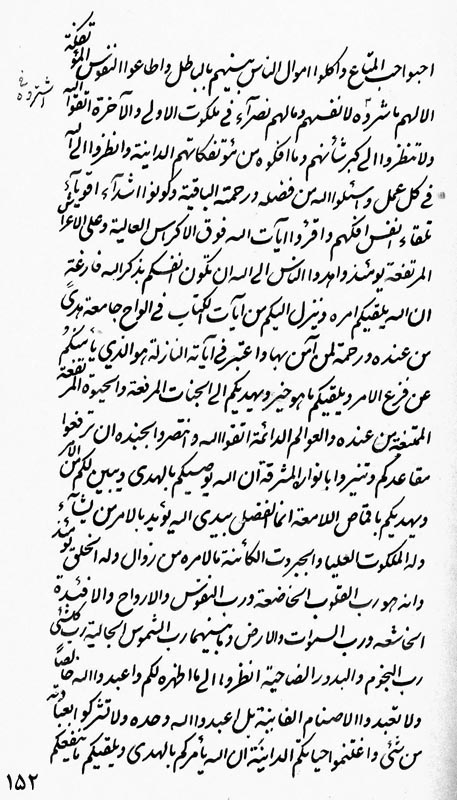 احبوا حب المتاع و اکلوا اموال الناس بینهم بالباطل و اطاعوا النفوس المؤتفکة
الا لهم ما شردوه لانفسهم و ما لهم نصرآء فی ملکوت الاولی و الآخرة اتقوا الله
اشتروه
و لا تنظروا الی کبر شأنهم و ما افکوه من مؤتفکاتهم الدانیة و انظروا الی الله
فی کل عمل و اسئلوا الله من فضله و رحمته الباقیة و کونوا اشدآء اقویآء
تلقاء انفس افکهم و اقرؤا آیات الله فوق الاکراس العالیة و علی
المرتفعة یومئذ و اهدوا الناس الی الله ان تکون انفسکم بذکر الله فارغة
ان الله یلقیکم امره و ینزل الیکم من آیات الکتاب فی الواح جامعة هدی
من عنده و رحمة لمن آمن بها و اعتبر فی آیاته النازلة هو الذی یأمرکم
عن فزع الامر و یلقیکم ما هو خیر و یهدیکم الی الجنات المرتفعة و الحیوة
الممتنعة من عنده و العوالم الدائمة اتقوا الله و انتصروا لجنده ان ترفعوا
مقاعدکم و تنیروا بانواره المشرقة ان الله یوصیکم بالهدی و یبین لکم من الامر
و یهدیکم باقماص اللامعة انما الفضل بیدی الله یؤید بالامر من یشآء
و له الملکوت العلیا و الجبروت الکائنة ما لامره من زوال و له الخلق یومئذ
و انه هو رب القلوب الخاضعة و رب النفوس و الارواح و الافئدة
الخاشعة و رب السموات و الارض و ما بینهما رب الشموس الجالیة رب کلشئ
رب النجوم و البدور الضاحیة انظروا الی ما اظهره لکم و اعبدوا الله خالصاً
و لا تعبدوا الاصنام الفانیة بل اعبدوا الله وحده و لا تشرکوا بعبادته
من شئ و اغتنموا حیاتکم الدانیة ان الله یأمرکم بالهدی و یلقیکم ما ینفعکم
۱۵۲